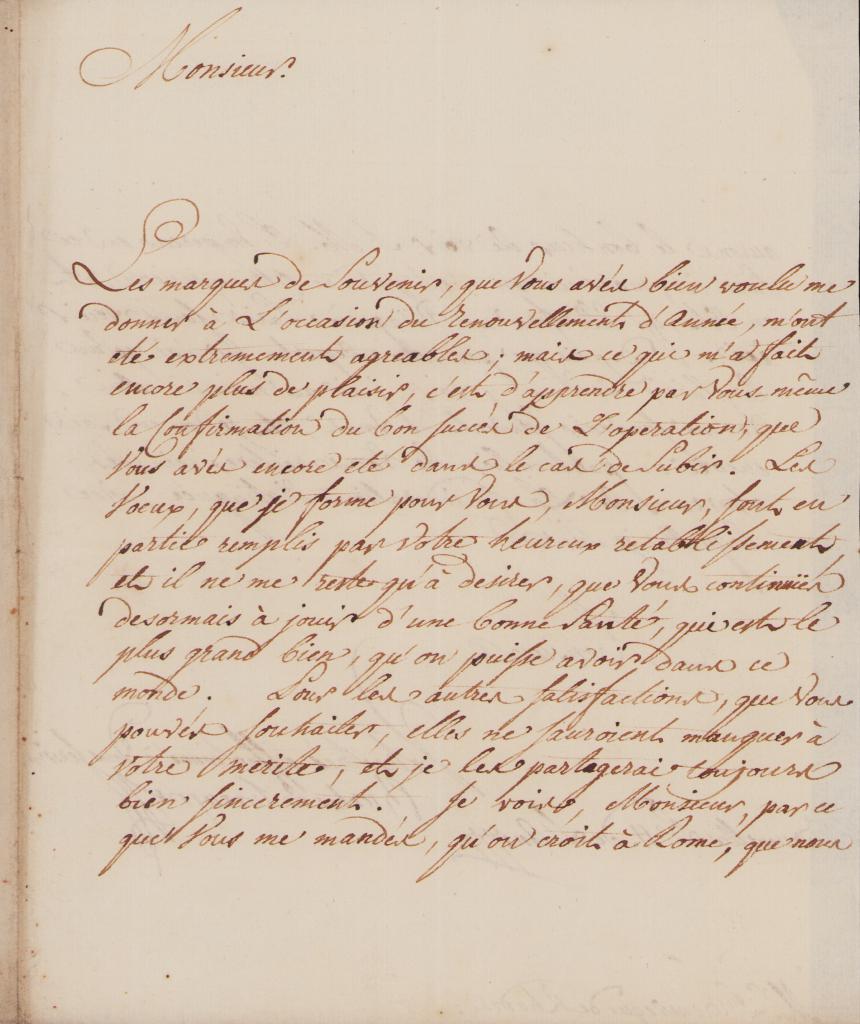 Monsieur.
Les marques de Souvenir, que Vous avés bien voulu me
donner à L'occasion du renouvellement d'année, m'ont
eté extremement agreables; mais ce qui m'a fait
encore plus de plaisir, c'est d'apprendre par Vous même
la Confirmation du bon succés de L'operation, que
Vous avés encore eté dans le cas de Subir. Les
Voeux, que je forme pour Vous, Monsieur, sont en
partie remplis par votre heureux retablissement,
et il ne me reste qu'à desirer, que Vous continuiés
desormais à jouir d'une bonne santé, qui est le
plus grand bien, qu'on puisse avoir dans ce
monde. Pour les autres satisfactions, que Vous
pouvés souhaiter, elles ne sauroient manquer à
votre merite, et je les partagerai toujours
bien sincerement. Je vois, Monsieur, par ce
que Vous me mandés, qu'on croit à Rome, que nous